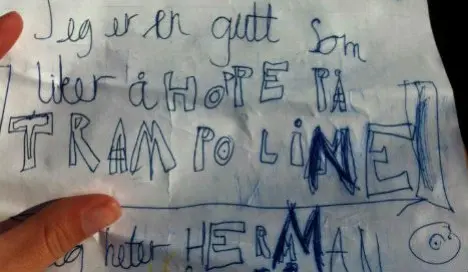 Jeg er en gutt som
liker å HOPPE PÅ
TRAMPOLINE!
heter HERMAN